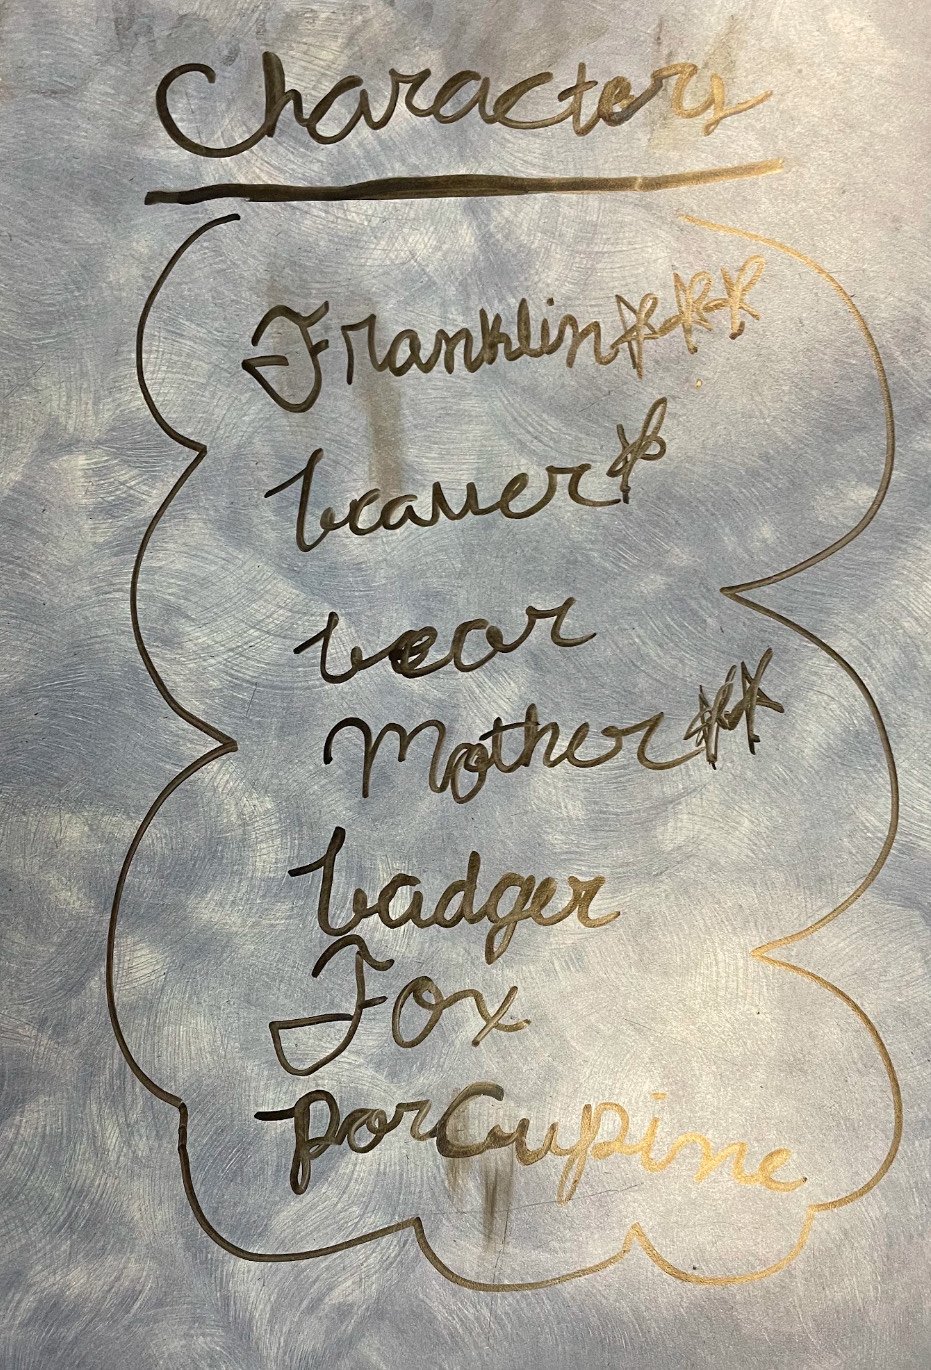 Characters
Franklin***
beaver*
bear
Mother**
badger
Fox
porCupine